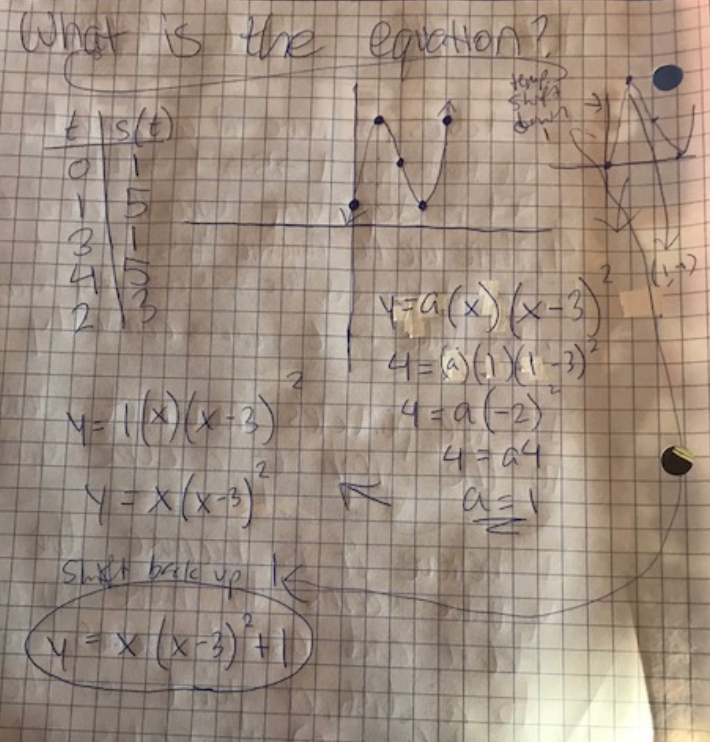 What is the equation?
t | s(t)
0 | 1
1 | 5
3 | 1
4 | 5
2 | 3
temp
shift
down
1
(1,4)
y=a(x)(x-3)²
4=(a)(1)(1-3)²
4=a(-2)²
4=a4
a=1
y=1(x)(x-3)²
y=x(x-3)²
shift back up 1
y=x(x-3)²+1